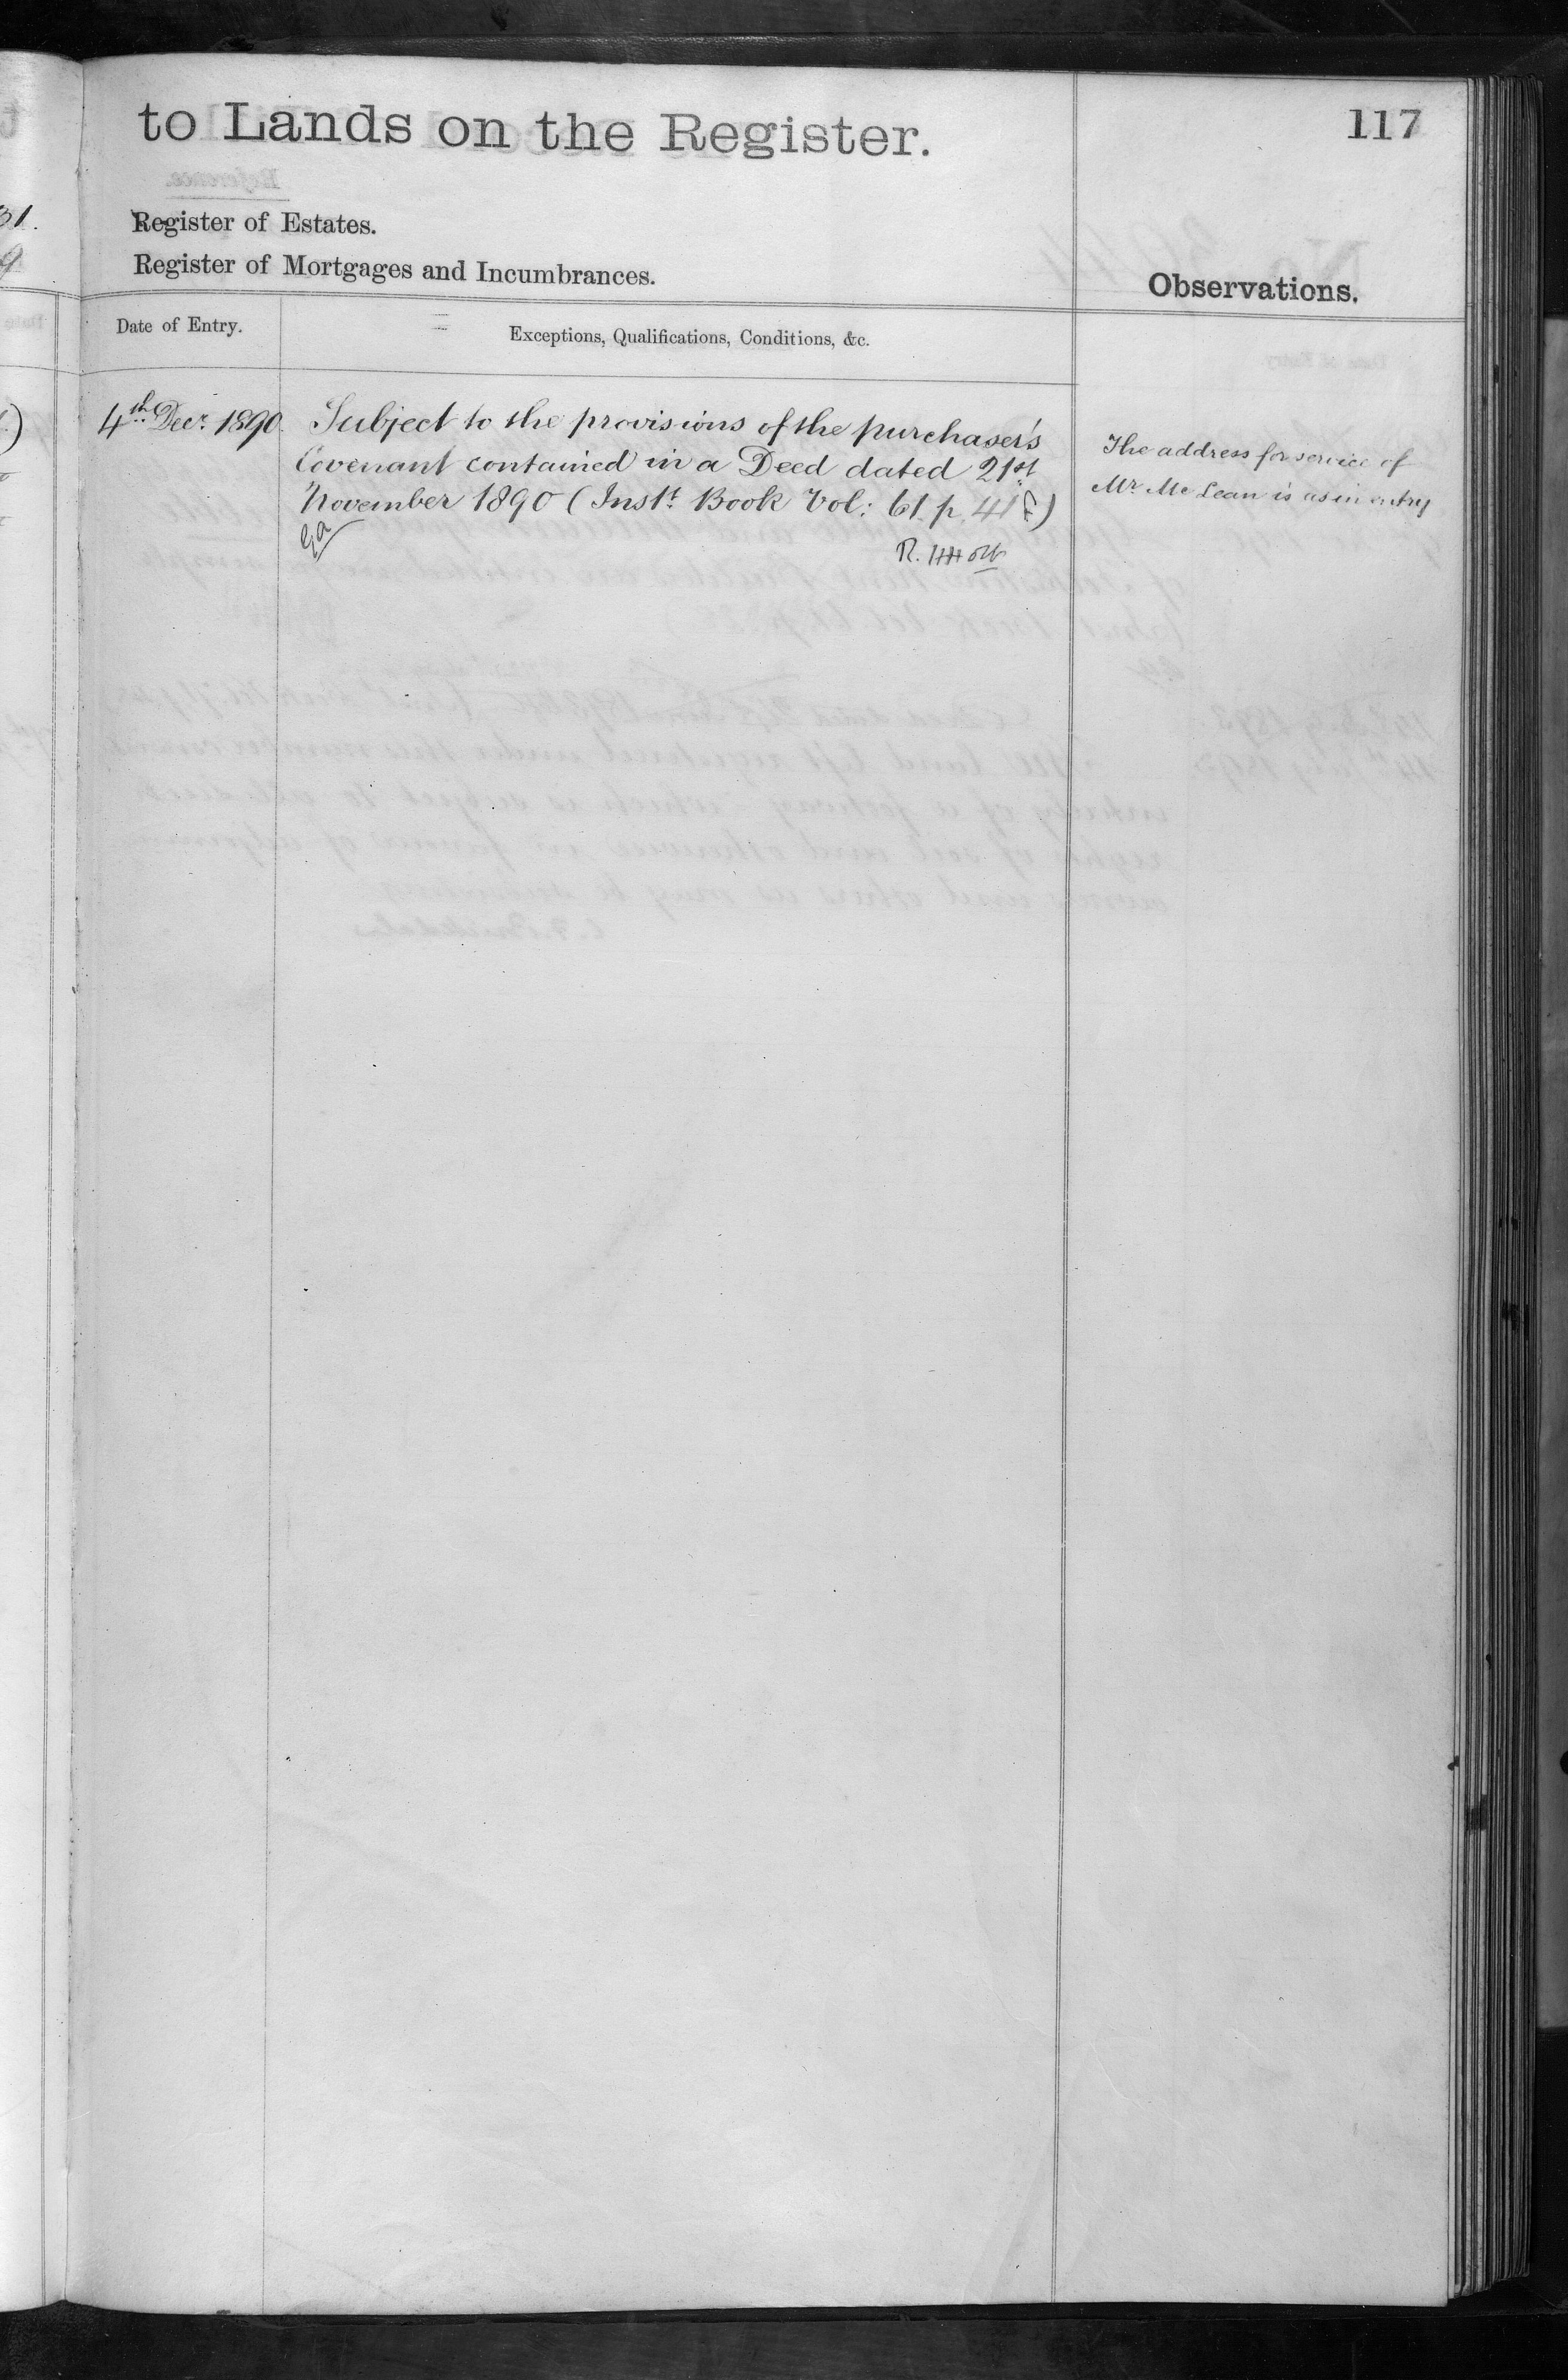 to Lands on the Register.
117
Register of Estates.
Register of Mortgages and Incumbrances.
Observations.
Date of Entry.
Exceptions, Qualifications, Conditions, &c.
4th Decr. 1890. Subject to the provisions of the purchaser's
Covenant contained in a Deed dated 21st
November 1890 (Inst. Book Vol: 61. p. 41)
R.
The address for service of
Mr. Mc Lean is as in entry
31.
9